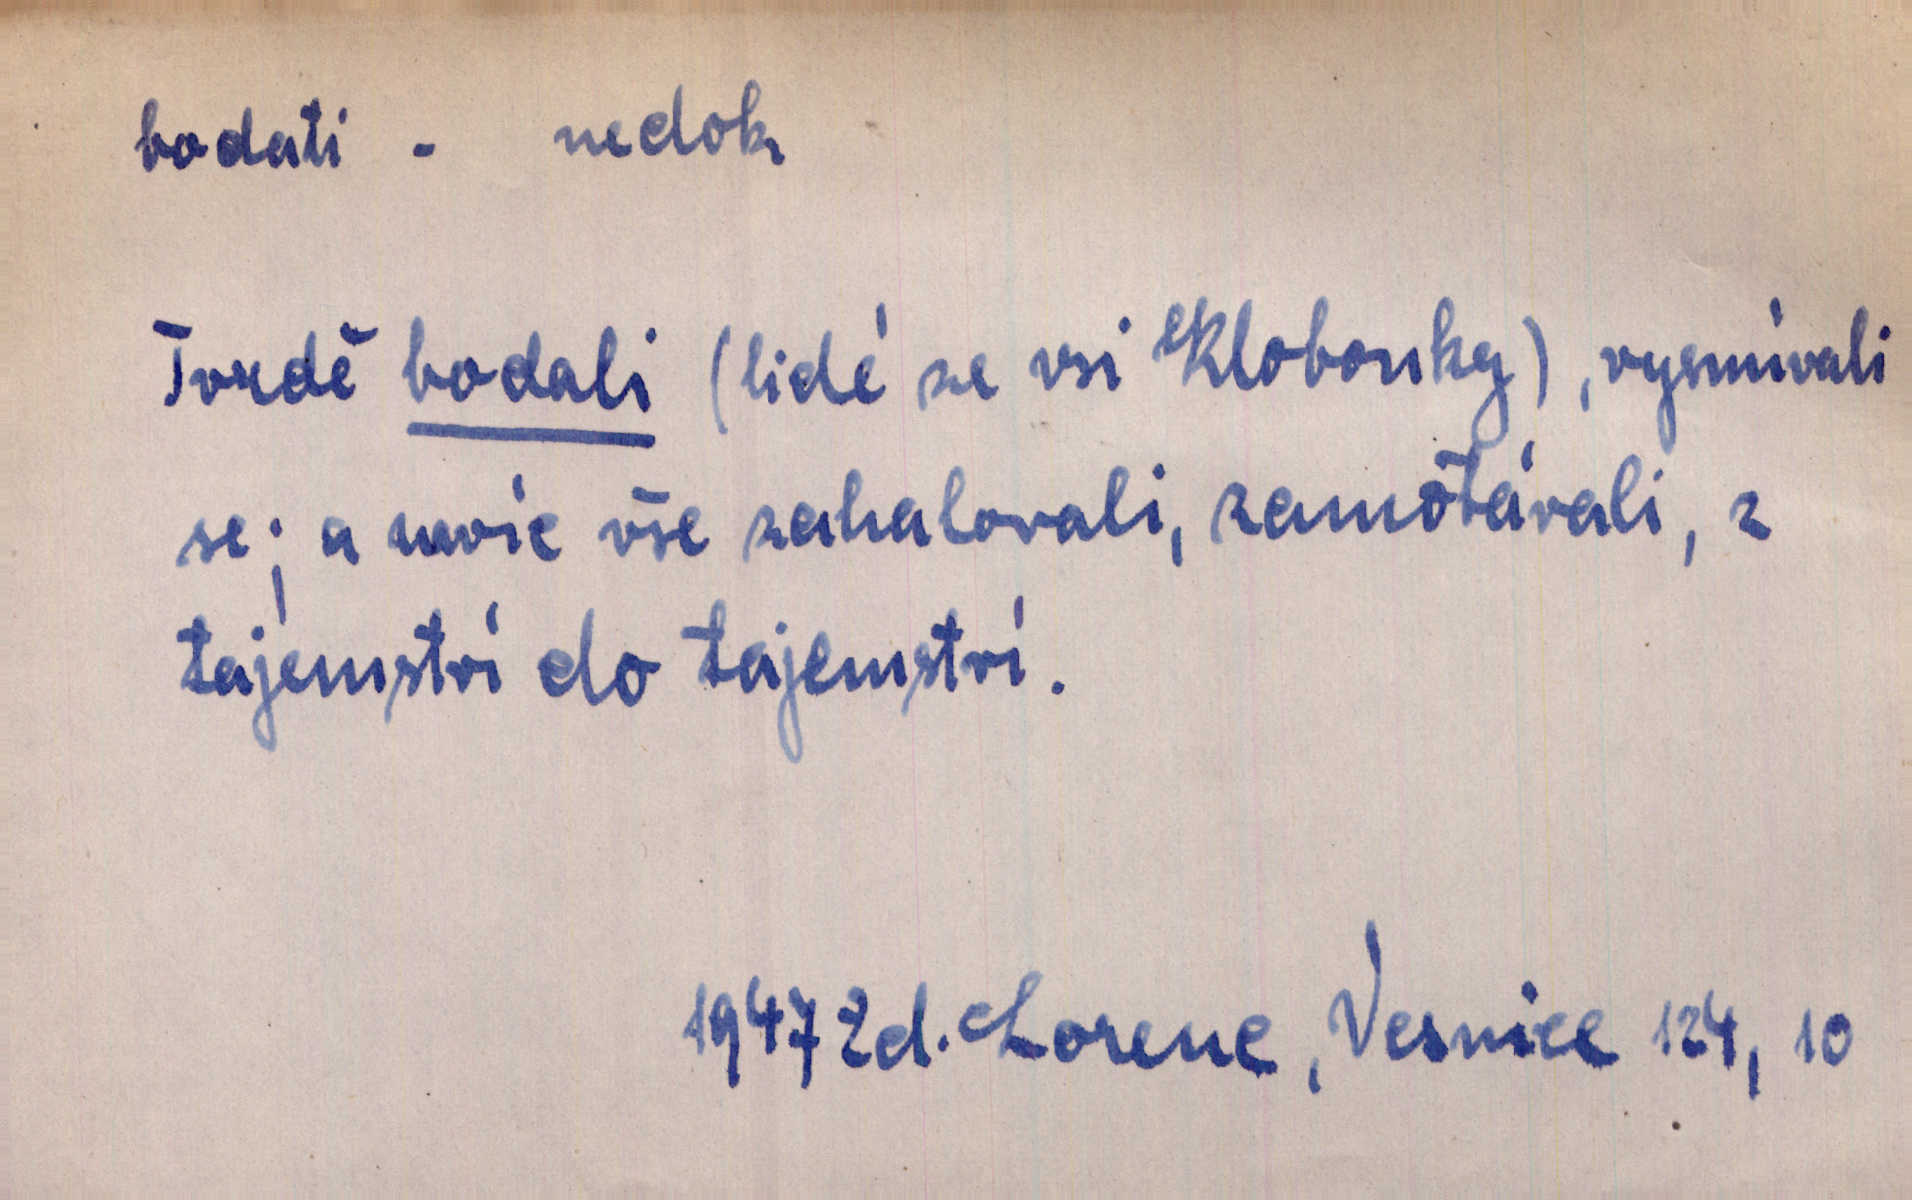 bodati - nedok.
Tvrdě bodali (lidé ze vsi Klobouky), vysmívali
se; a navíc vše zahalovali, zamotávali, z
tajemství do tajemství.
1947 Zd. Lorenc, Vesnice 124, 10